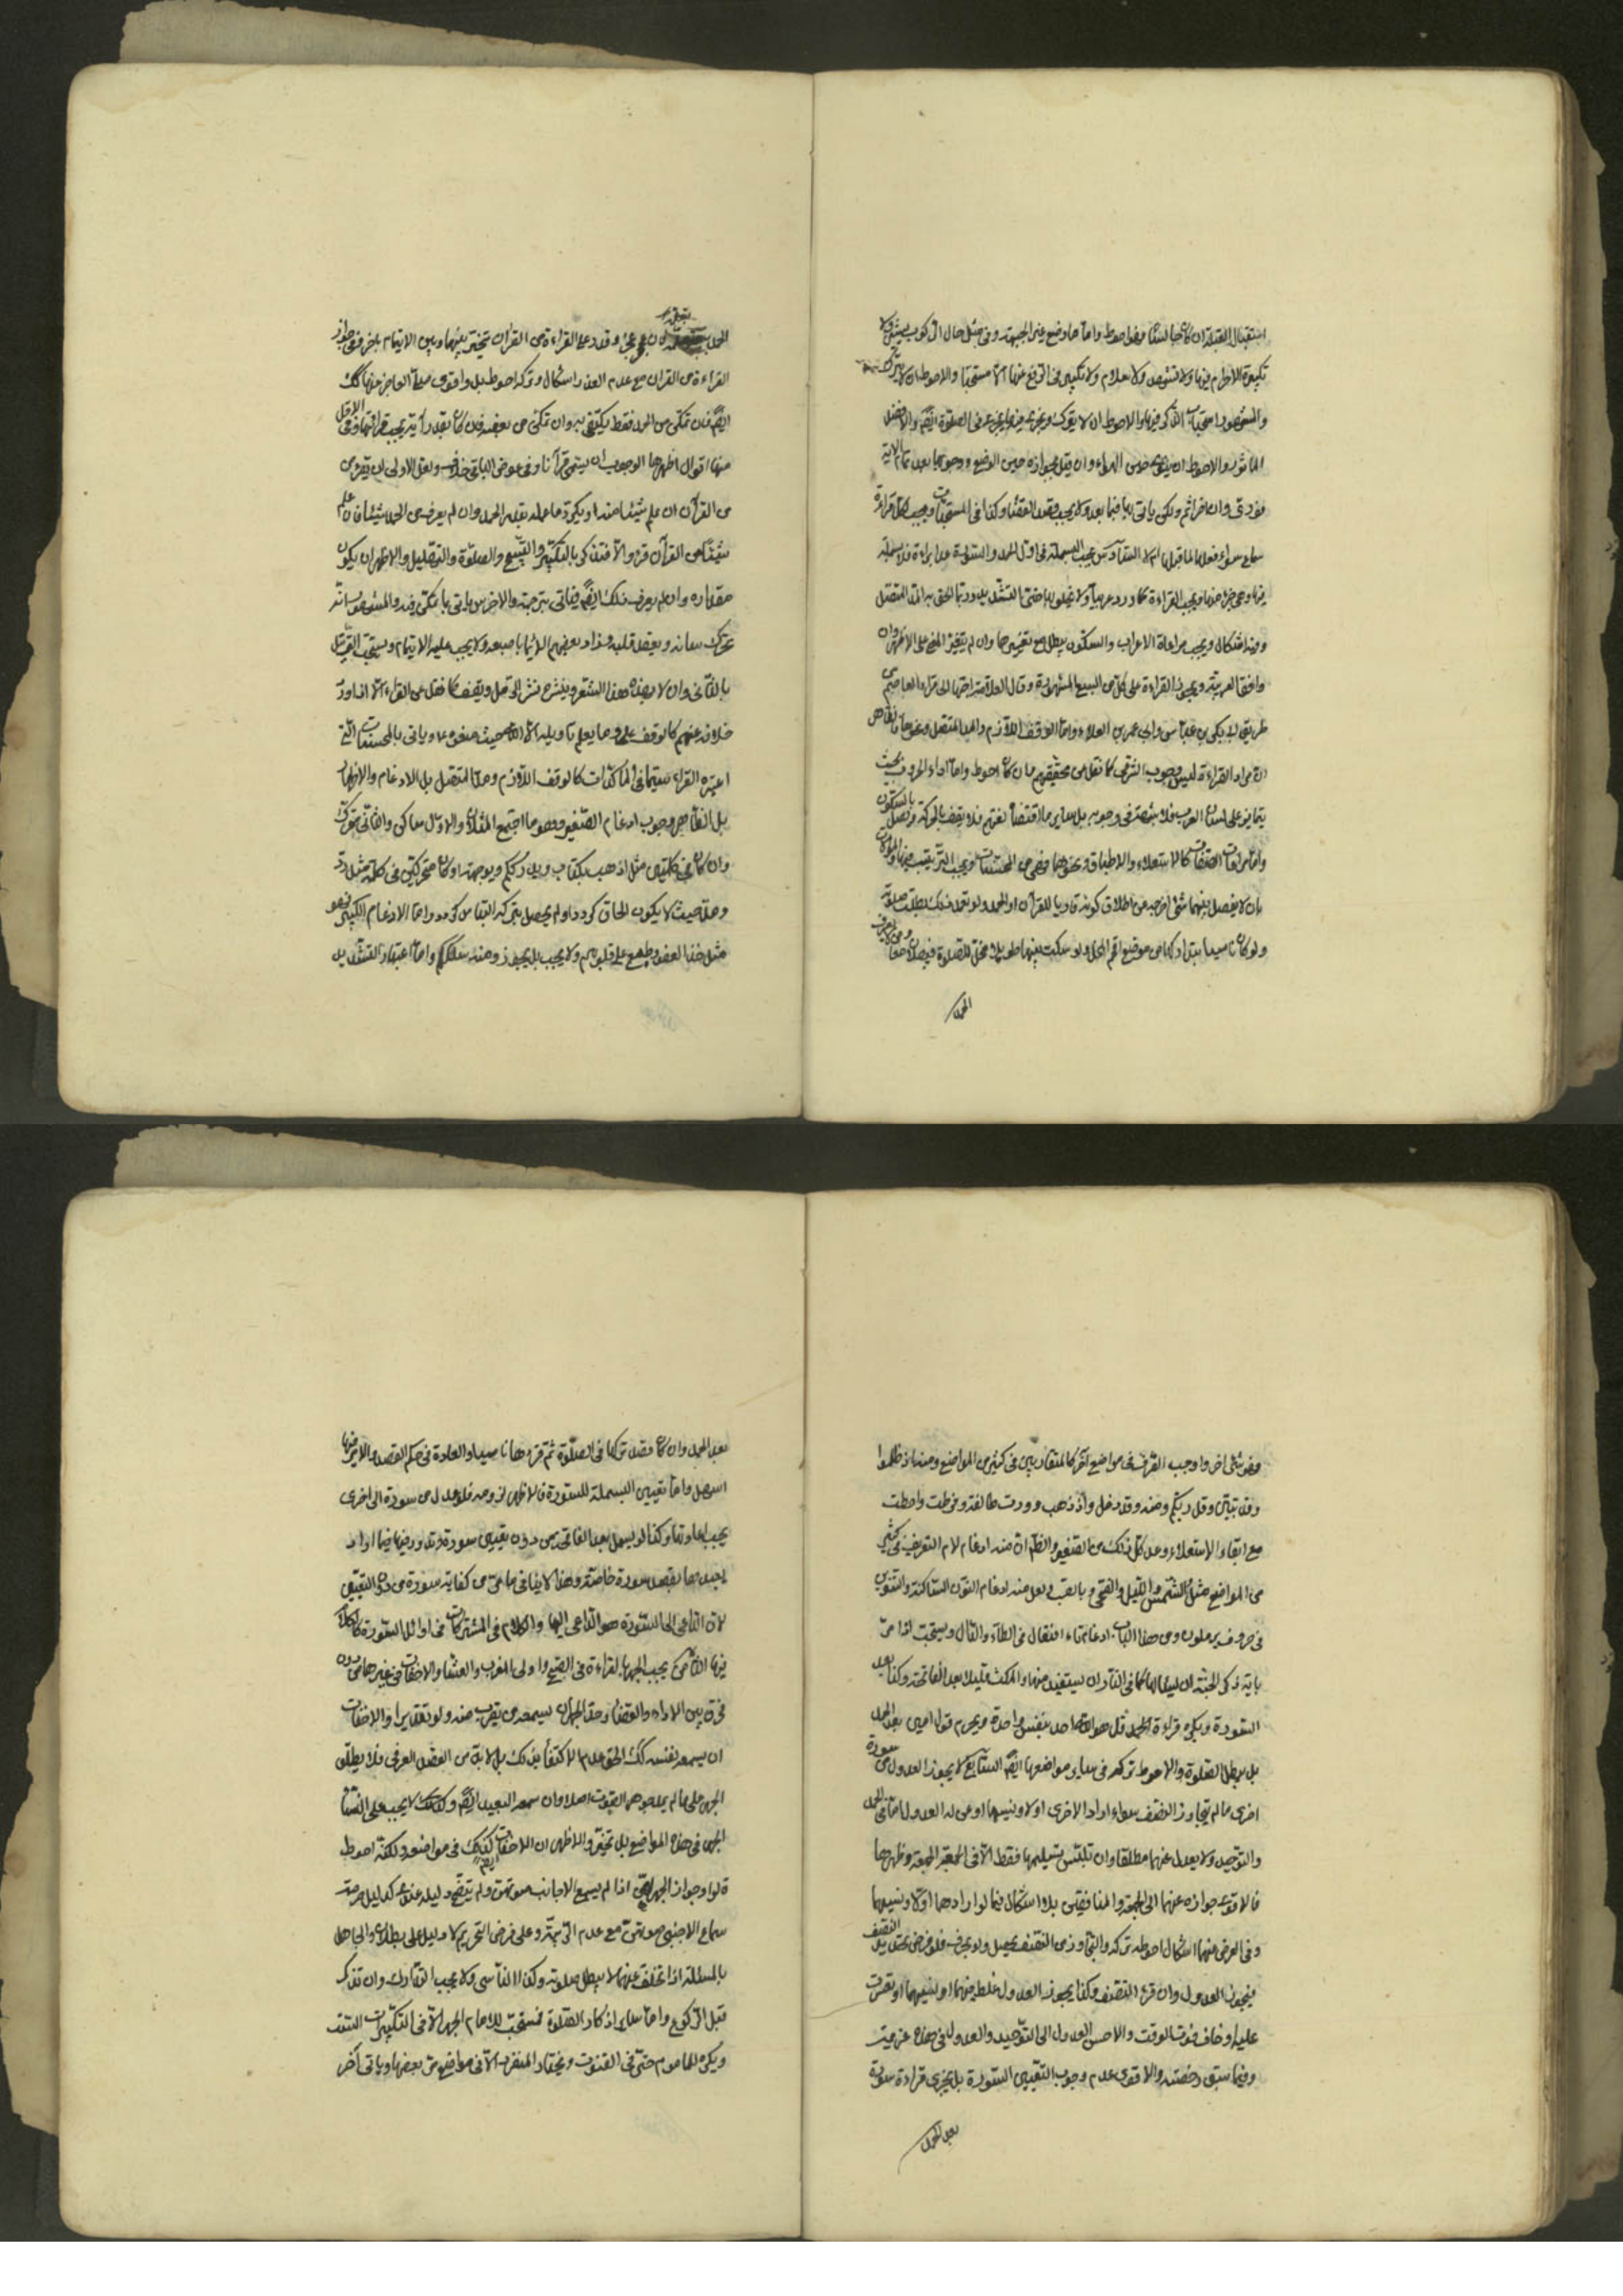 استقبال القبلة ان كان جالسا فهو احوط واما ما وضع غير الجبهة وفى مثل حال الركوب
تكبيرة الاحرام فيها ولا تشهد ولا سلام ولا تكبير فى الرفع عنها الا مستحبا والاحوط ان لا يترك
والسجود استحباب الذكر فيها والاحوط ان لا يترك ويجزى فيها ما يجزى فى الصلوة ايضا والافضل
الماثور والاحوط ان
فورى وان اخر اثم ولكن ياتى بها فيما بعد ولا يجب قصد القضاء وكذا فى المستحبات ويجب كمال قراءة
البسملة فى اول الحمد والسورة عدا براءة فلا بسملة
فيها وهى جزء منها ويجب القراءة كما ورد عربيا ولا يخل بها حتى التشديد وربما الحق به المد المتصل
وفيه اشكال ويجب مراعاة الاعراب والسكون يبطل مع تغييرها وان لم يتغير المعنى على الاظهر وان
وافقا العربية ويجوز القراءة على كل من السبع المشهورة وقال العلامة احبها الى قراءة العاصم من
طريق ابى بكر بن عياش وابى عمرو بن العلاء واما الوقف اللازم والمد المتصل ونحوها فالظاهر
ان مراد القراءة ليس وجوب الشرعى كما نقل من محققيهم وان كان احوط واما اداء الحروف بحيث
يتمايز على لسان العرب فلا شبهة فى وجوبه بل ساير ما اقتضاه لغتهم فلا يقف بالحركة ويصل بالسكون
واما مراعات الصفات كالاستعلاء والاطباق ونحوهما فهى من المحسنات ويجب الترتيب فيها والموالات
بان لا يفصل بينهما شئ اخرجه عن اطلاق كونه قاريا للقرآن او الحمد ولو تعمد ذلك بطلت صلوته
ولو كان ناسيا يتدارك من موضع اتم الحمد ولو سكت بينها طويلا مخل للصلوة فيبطلان معا ومن لا يعرف
الحمد
الحمد يتعلمه فان عجز وقدر على القراءة من القرآن تخير بينهما وبين الايتمام باخر وفى جواز
القراءة من القران مع عدم العذر اشكال وتركه احوط بل واقوى مع العاجز منها كك
ايضا فان تمكن من الحمد فقط يكتفى به وان تمكن من بعضه فان كان بقدر آية يجب قرائتها وفى الاقل
منها اقوال اظهرها الوجوب ان يسمى قرآنا وفى عوض الباقى خلاف ولعل الاولى ان يقرء من
من القرآن ان علم شيئا منه او يكرر ما علمه بقدر الحمد وان لم يعرف من الحمد شيئا فان علم
شيئا من القرآن قرء والا فتذكر بالتكبير والتسبيح والصلوة والتهليل والاظهر ان يكون
مقداره وان لم يعرف ذلك ايضا فياتى بترجمته والاخرس ياتى بما يمكن منه والمشهور انه
يحرك لسانه ويعقد قلبه وزاد بعضهم الايماء باصبعه ولا يجب عليه الايتمام ويستحب الترتيل
بالتانى وان لا يهذه هذا الشعر وينثره نثر الرمل ويقف كما نقل عن القراء الا اذا ورد
خلافه عنهم كالوقف على وما يعلم تاويله الا الله حيث منعوه ويأتى بالمحسنات التى
اعتبره القراء سيما فى المؤكدات كالوقف اللازم ومد المتصل بل الادغام والاظهار
بل الظاهر وجوب ادغام الصغير وهو ما اجتمع المثلان والاول ساكن والثانى متحرك
وان كان فى كلمتين مثل اذهب بكتاب ويدرككم ويوجهه او كان متحركين فى كلمة مثل رد
ومد حيث لا يكون الحاق كردد او لم يحصل بتركه التباس كردد واما الادغام الكبير فهو
مثل خذ العفو وطبع على قلوبهم ولا يجب بل يجوز ومنه سلككم واما اعتبار التشديد
فهو شئ اخر واوجب القراء فى مواضع آخر كالمتقاربين فى كثير من المواضع ومنه اذ ظلموا
وقد تبين وقل ربكم ومنه وقد دخل واذ ذهب وودت طائفة وفرطت واحطت
مع ابقاء الاستعلاء وعد كل ذلك من الصغير والظاهر ان منه ادغام لام التعريف فى كثير
من المواضع مثل الشمس والليل والضحى وبالقرب يعد منه ادغام النون الساكنة والتنوين
فى حروف يرملون ومن هذا الباب ادغام تاء افتعال فى الطاء والدال ويستحب اذا مر
باية ذكر الجنة ان يسئلها كما فى النار ان يستعيذ منها والمكث قليلا بعد الفاتحة وكذا بعد
السورة ويكره قراءة قل هو الله احد بنفس واحدة ويحرم قول امين بعد الحمد
بل يبطل الصلوة والاحوط تركه فى ساير مواضعها ايضا السابع لا يجوز العدول من سورة
اخرى ما لم يتجاوز النصف سواء اراد الاخرى اولا ونسيها او عن له العدول اما فى الجحد
والتوحيد ولا يعدل عنهما مطلقا وان تلبس ببسمليهما فقط الا فى الجمعة وظهرها
فالاقوى جوازه عنهما الى الجمعة والمنافقين بلا اشكال فيما لو ارادهما اولا ونسيهما
وفى العرض منهما اشكال احوطه تركه والتجاوز من النصف يحصل ولو بحرف فلو فرض تعديل النصف
فيجوز العدول وان قرء النصف وكذا يجوز العدول لغلط فيهما او لنسيهما او تعسرت
عليه او خاف فوت الوقت والاحسن العدول الى التوحيد والعدول فى هذه عزيمت
وفيما سبق رخصته والاقوى عدم وجوب التعيين السورة بل يجزى قراءة سورة
بعد الحمد
بعد الحمد وان كان قصد تركها فى الصلوة ثم قرءها ناسيا والعادة فى حكم القصد والامر فيها
اسهل واما تعيين البسملة للسورة فالاظهر لزومه فلو عدل من سورة الى اخرى
يجب اعادتها وكذا لو بسمل بعد الفاتحة من دون تعيين سورة وتردد فيها فيما اراد
يعيدها بقصد سورة خاصة وهذا لا ينافى ما مر من كفاية سورة من دون التعيين
لان الداعى الى السورة هو الداعى اليها والكلام فى المشتركات فى اوائل السورة كالكلام
فيها الثامن يجب الجهر بالقراءة فى الصبح واولى المغرب والعشاء والاخفات فى غيرها من دون
فرق بين الاداء والقضاء وحد الجهر ان يسمعه من يقرب منه ولو تقديرا والاخفات
ان يسمعه نفسه كك الحق عدم الاكتفاء بذلك بل لا بد من الفصل العرفى فلا يطلق
الجهر على ما لم يظهر جوهر الصوت اصلا وان سمعه البعيد ايضا ولكن كك لا يجب على النساء
الجهر فى هذه المواضع بل تخير والاظهر ان الاخفات كذلك فى مواضعه ولكنه احوط
وجواز الجهر لهن اذا لم يسمع الاجانب صوتهن ولم يتضح دليله عندى كدليل حرمته
سماع الاجنبى صوتهن مع عدم الريبة وعلى فرض التحريم لا دليل على بطلان والجاهل
بالمسئلة اذا تخلف عنهما لا يبطل صلوته وكذا الناسى ولا يجب التدارك وان تذكر
قبل الركوع واما ساير اذكار الصلوة فيستحب للامام الجهر الا فى التكبيرات الست
ويكره للماموم حتى فى القنوت ويختار المنفرد الا فى مواضع مر بعضها وياتى آخر